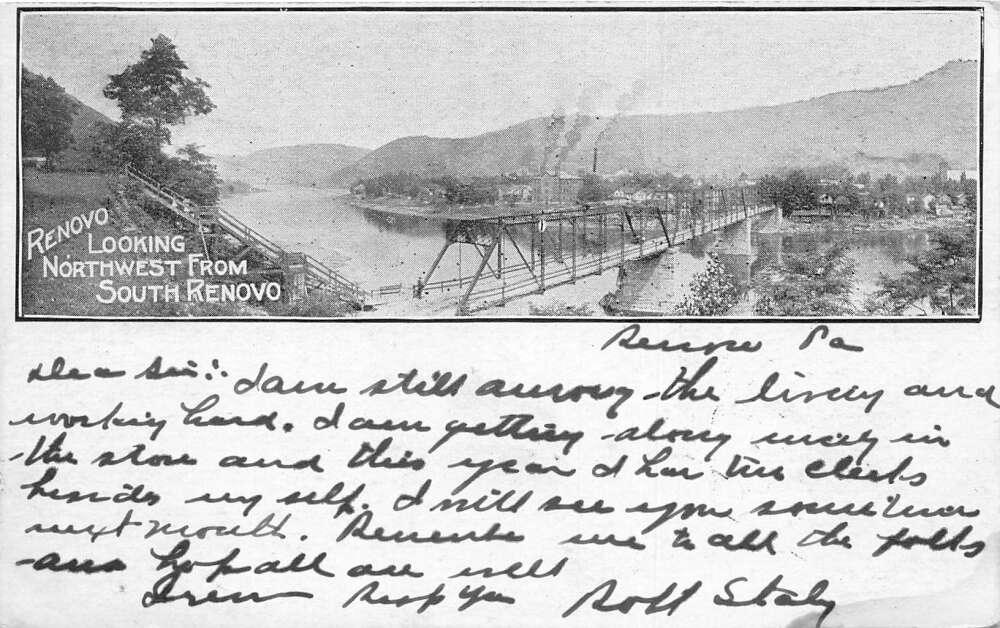 RENOVO
LOOKING
NORTHWEST FROM
SOUTH RENOVO
Renovo Pa
Dear Sir:- I am still among the living and
working hard. I am getting along nicely in
the store and this year I hav two clerks
besides my self. I will see you sometime
next month. Remember me to all the folks
and hop all are well
Resp
Staly